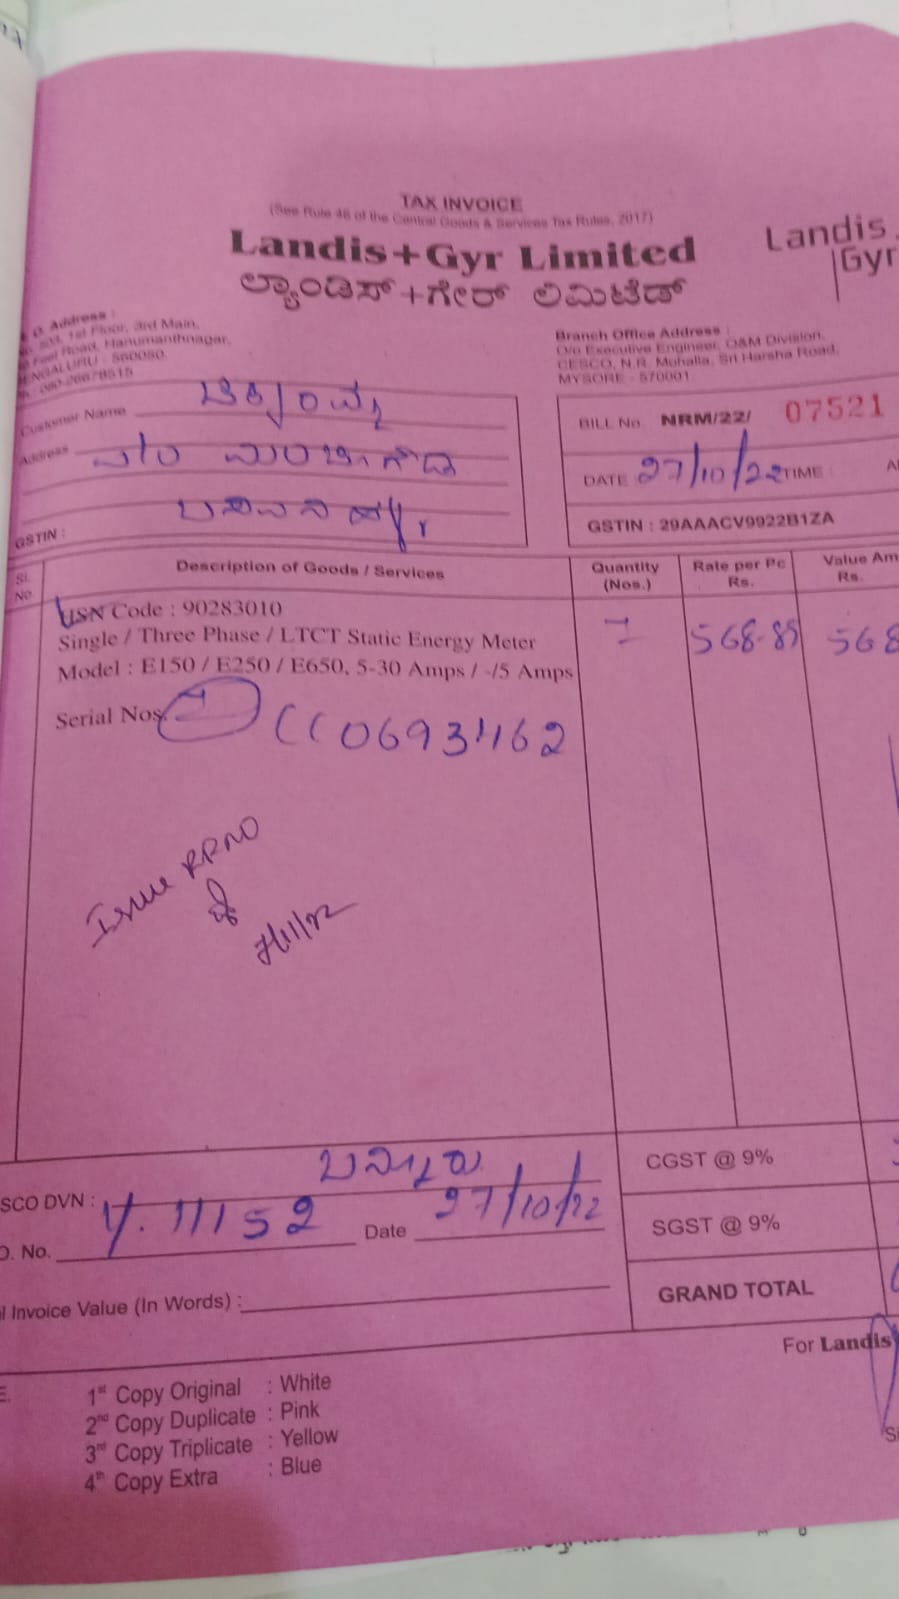 TAX INVOICE
(See Rule 46 of the Central Goods & Services Tax Rules, 2017)
Landis+Gyr Limited
ಲ್ಯಾಂಡಿಸ್+ಗೇರ್ ಲಿಮಿಟೆಡ್
Landis
Gyr
O. Address :
1st Floor, 3rd Main,
Road, Hanumanthnagar,
BENGALURU - 560050.
080-26678515
Branch Office Address :
O/o Executive Engineer, O&M Division,
CESCO, N.R. Mohalla, Sri Harsha Road,
MYSORE - 570001
Customer Name
Address
GSTIN :
BILL No. NRM/22/ 07521
DATE 27/10/22 TIME :
GSTIN : 29AAACV9922B1ZA
Sl. No. Description of Goods / Services Quantity (Nos.) Rate per Pc Rs. Value Am Rs.
USN Code : 90283010
Single / Three Phase / LTCT Static Energy Meter
Model : E150 / E250 / E650, 5-30 Amps / -/5 Amps
568-89 568
Serial Nos. CC0693462
Issue RRNO
7/11/22
SCO DVN : ಬನ್ನೂರು
O. No. Y. 11152 Date 27/10/22
Invoice Value (In Words) :
CGST @ 9%
SGST @ 9%
GRAND TOTAL
For Landis
1st Copy Original : White
2nd Copy Duplicate : Pink
3rd Copy Triplicate : Yellow
4th Copy Extra : Blue